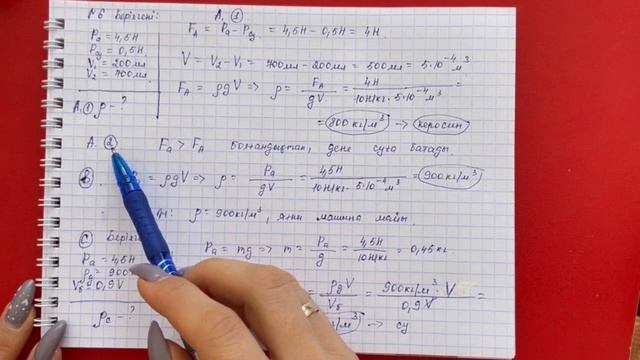 №6 Берілгені:
Pа = 4,5Н
Pсұ = 0,5Н
V₁ = 200мл
V₂ = 700мл
А. ① ρ - ?
А. ①
F_A = Pа - Pсұ = 4,5Н - 0,5Н = 4Н
V = V₂ - V₁ = 700мл - 200мл = 500мл = 5·10⁻⁴ м³
F_A = ρgV => ρ = F_A / gV = 4Н / 10Н/кг · 5·10⁻⁴ м³ =
= 800 кг/м³ → керосин
А. ② Fа > F_A болмандықтан, дене суға батады.
В. = ρgV => ρ = Pа / gV = 4,5Н / 10Н/кг · 5·10⁻⁴ м³ = 900 кг/м³
ρ = 900кг/м³, яғни машина майы.
С Беріл
Pа = 4,5Н
ρа = 900
Vб = 0,9V
ρс - ?
Pа = mg => m = Pа / g = 4,5Н / 10Н/кг = 0,45кг
= ρgV / Vб = 900кг/м³ · V / 0,9V =
г/м³ → су